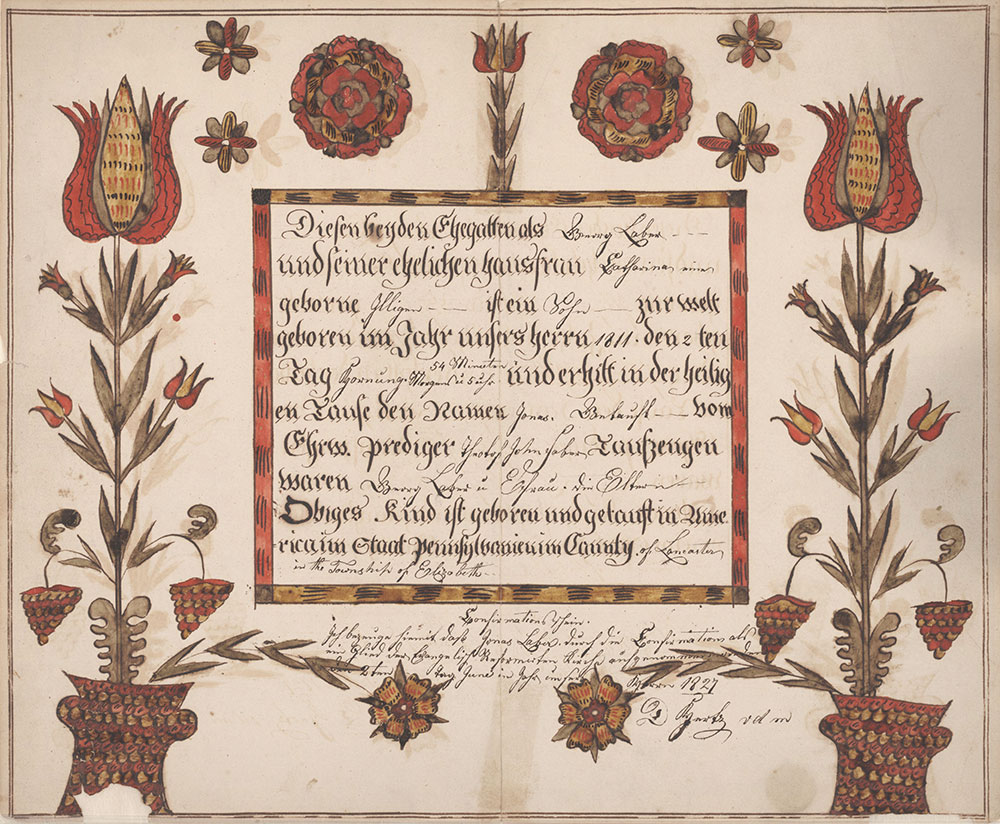 Diesen beyden Ehegatten als Georg Laber
und seiner ehelichen hausfrau Catharina eine
geborne Illigen ist ein Sohn zur welt
geboren im Jahr unsers herrn 1811. den 2 ten
Tag Hornung. Morgens u 5 uhr 54 Minuten und erhilt in der heilig
en Taufe den Namen Jonas. Getauft vom
Ehrw. Prediger John Faber Taufzeugen
waren Georg Laber u die Eltern
Obiges Kind ist geboren und getauft in Ame-
rica im Staat Pennsylvanien im Caunty of Lancaster
in the Township of Elizabeth
Confirmations Schein.
Ich bezeuge hiermit daß Jonas Laber durch die Confirmation als
ein Glied der Evangelisch Reformirten Kirche aufgenommen
2ten Tag June im Jahr unsers Herrn 1827
Hertz v d m